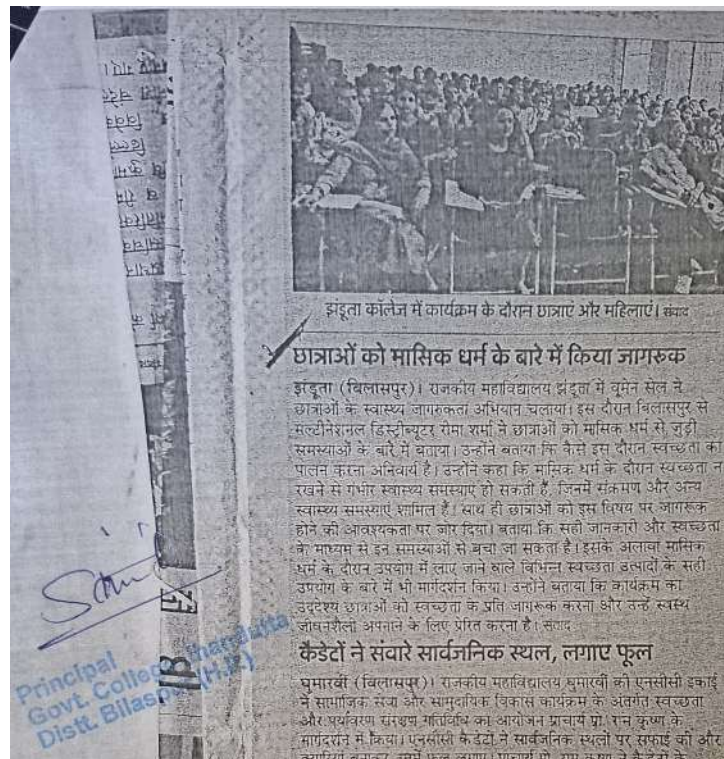 झंडूता कॉलेज में कार्यक्रम के दौरान छात्राएं और महिलाएं। संवाद
छात्राओं को मासिक धर्म के बारे में किया जागरूक
झंडूता (बिलासपुर)। राजकीय महाविद्यालय झंडूता में वूमेन सेल ने
छात्राओं के स्वास्थ्य जागरुकता अभियान चलाया। इस दौरान बिलासपुर से
मल्टीनेशनल डिस्ट्रीब्यूटर रोमा शर्मा ने छात्राओं को मासिक धर्म से जुड़ी
समस्याओं के बारे में बताया। उन्होंने बताया कि कैसे इस दौरान स्वच्छता का
पालन करना अनिवार्य है। उन्होंने कहा कि मासिक धर्म के दौरान स्वच्छता न
रखने से गंभीर स्वास्थ्य समस्याएं हो सकती हैं, जिनमें संक्रमण और अन्य
स्वास्थ्य समस्याएं शामिल हैं। साथ ही छात्राओं को इस विषय पर जागरूक
होने की आवश्यकता पर जोर दिया। बताया कि सही जानकारी और स्वच्छता
के माध्यम से इन समस्याओं से बचा जा सकता है। इसके अलावा मासिक
धर्म के दौरान उपयोग में लाए जाने वाले विभिन्न स्वच्छता उत्पादों के सही
उपयोग के बारे में भी मार्गदर्शन किया। उन्होंने बताया कि कार्यक्रम का
उद्देश्य छात्राओं को स्वच्छता के प्रति जागरूक करना और उन्हें स्वस्थ
जीवनशैली अपनाने के लिए प्रेरित करना है। संवाद
कैडेटों ने संवारे सार्वजनिक स्थल, लगाए फूल
घुमारवीं (बिलासपुर)। राजकीय महाविद्यालय घुमारवीं की एनसीसी इकाई
ने सामाजिक सेवा और सामुदायिक विकास कार्यक्रम के अंतर्गत स्वच्छता
और पर्यावरण संरक्षण गतिविधि का आयोजन प्राचार्य प्रो. राम कृष्ण के
मार्गदर्शन में किया। एनसीसी कैडेटों ने सार्वजनिक स्थलों पर सफाई की और
Principal
Govt. College Jhandutta
Distt. Bilaspur (H.P.)